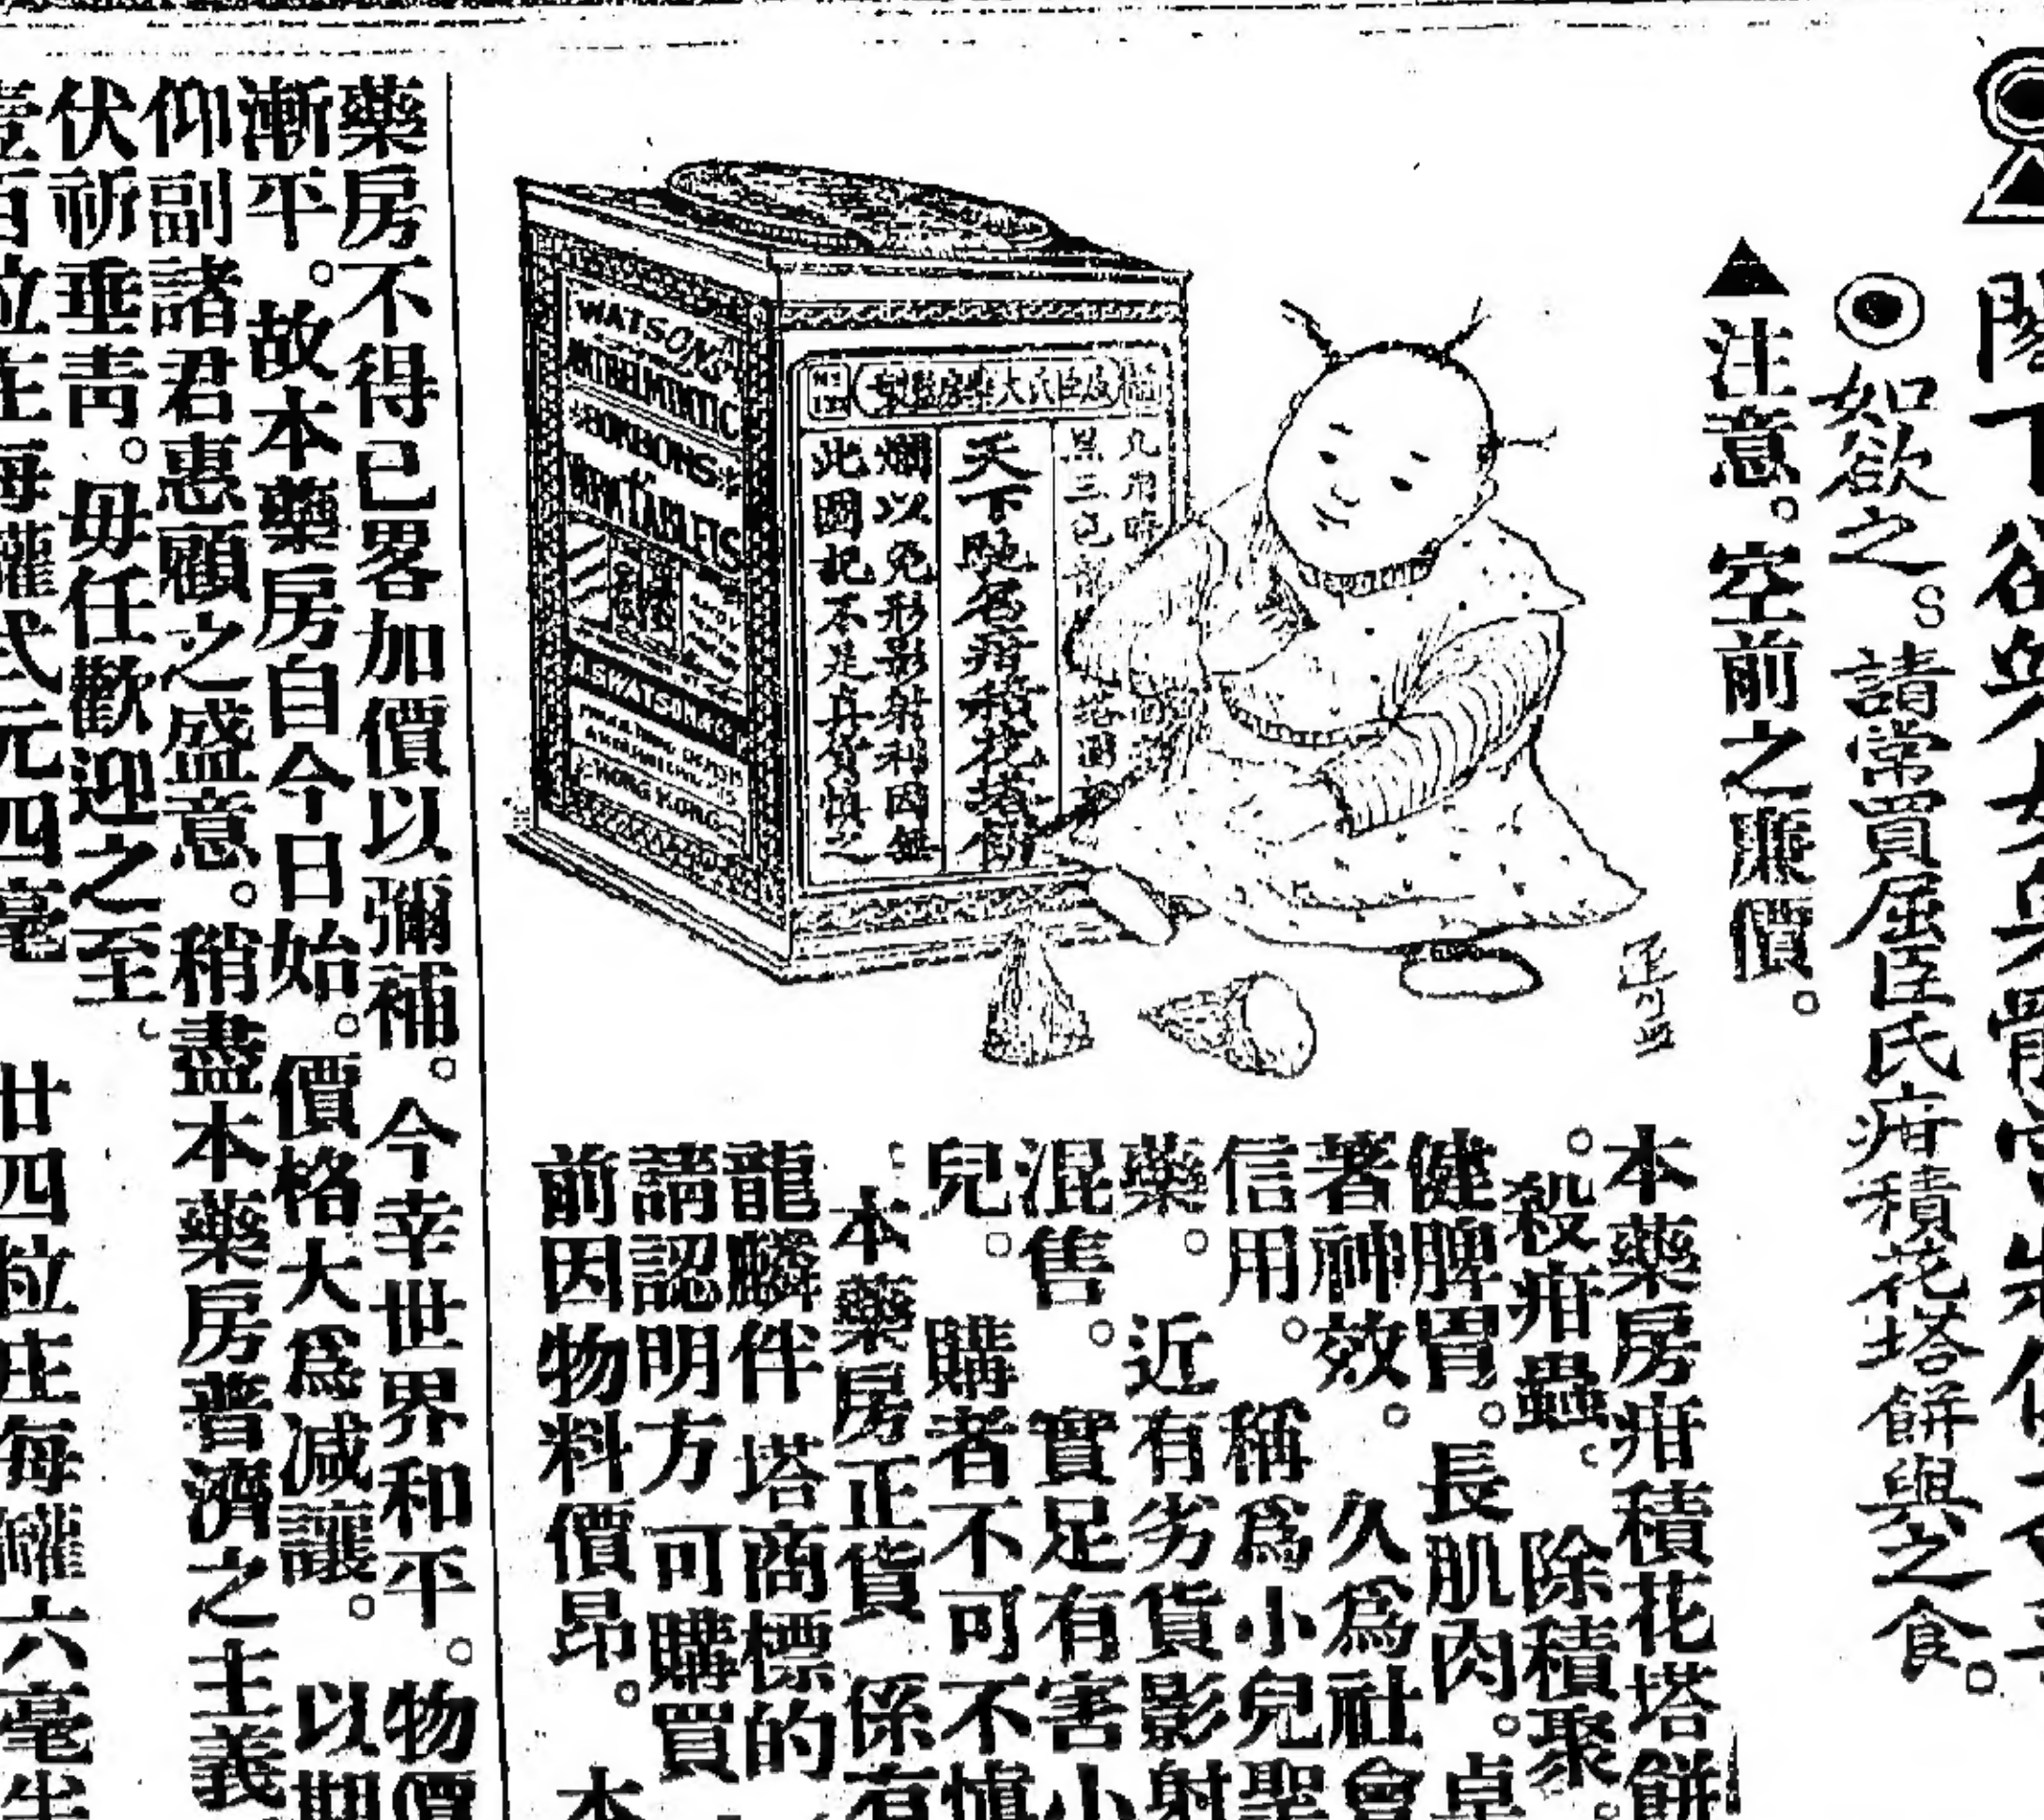 閣下欲與
如欲之。請常買屈臣氏疳積花塔餅與之食。
▲注意。空前之廉價。
WATSON'S
BONBONS
OR
WORM TABLETS
A.S. WATSON & CO
HONG KONG
天下馳名疳積花塔餅
爛以免形影射利因無
此圖記不是真貨慎之
本藥房疳積花塔餅
。殺疳蟲。除積聚。
健脾胃。長肌肉。卓
著神效。久爲社會
信用。稱爲小兒聖
藥。近有劣貨影射
混售。實足有害小
兒。購者不可不慎
本藥房正貨 係有
龍麟伴塔商標的
請認明方可購買
前因物料價昂。本
藥房不得已畧加價以彌補。今幸世界和平。物價
漸平。故本藥房自今日始。價格大爲減讓。以期
仰副諸君惠顧之盛意。稍盡本藥房普濟之主義
伏祈垂青。毋任歡迎之至。
壹百粒庄每罐弍元四毫 廿四粒庄每罐六毫